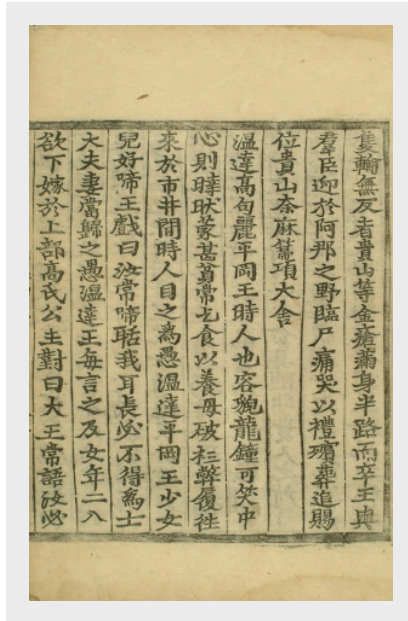 隻輪無反者貴山等金瘡滿身半路而卒王與
羣臣迎於阿那之野臨尸痛哭以禮殯葬追賜
位貴山奈麻箒項大舍
温達高句麗平岡王時人也容貌龍鐘可笑中
心則曄然家甚貧常乞食以養母破衫弊履往
來於市井間時人目之爲愚温達平岡王少女
兒好啼王戲曰汝常啼聒我耳長必不得爲士
大夫妻當歸之愚温達王每言之及女年二八
欲下嫁於上部高氏公主對曰大王常語汝必